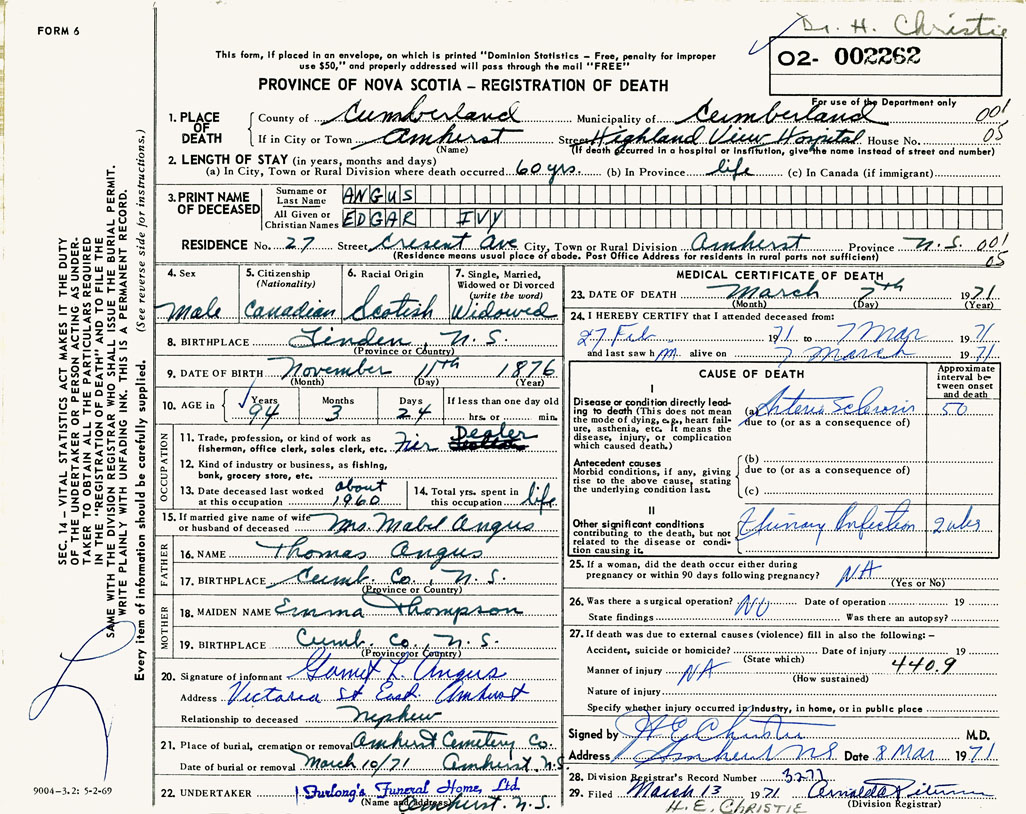 FORM 6
Dr. H. Christie
02- 002262
For use of the Department only
This form, if placed in an envelope, on which is printed "Dominion Statistics – Free, penalty for improper
use $50," and properly addressed will pass through the mail "FREE"
PROVINCE OF NOVA SCOTIA – REGISTRATION OF DEATH
1. PLACE OF DEATH County of Cumberland Municipality of Cumberland 001
If in City or Town Amherst Street Highland View Hospital House No. 05
(Name) (If death occurred in a hospital or institution, give the name instead of street and number)
2. LENGTH OF STAY (in years, months and days)
(a) In City, Town or Rural Division where death occurred 60 yrs. (b) In Province life (c) In Canada (if immigrant)
3. PRINT NAME OF DECEASED Surname or Last Name ANGUS
All Given or Christian Names EDGAR IVY
RESIDENCE No. 27 Street Cresent Ave City, Town or Rural Division Amherst Province N.S. 001
(Residence means usual place of abode. Post Office Address for residents in rural parts not sufficient) 05
4. Sex Male
5. Citizenship (Nationality) Canadian
6. Racial Origin Scotish
7. Single, Married, Widowed or Divorced (write the word) Widowed
8. BIRTHPLACE Linden, N.S.
(Province or Country)
9. DATE OF BIRTH November 11th 1876
(Month) (Day) (Year)
10. AGE in Years 94 Months 3 Days 24 If less than one day old hrs. or min.
OCCUPATION
11. Trade, profession, or kind of work as fisherman, office clerk, sales clerk, etc. Fur Dealer
12. Kind of industry or business, as fishing, bank, grocery store, etc.
13. Date deceased last worked at this occupation about 1960
14. Total yrs. spent in this occupation life
15. If married give name of wife or husband of deceased Mrs. Mabel Angus
FATHER
16. NAME Thomas Angus
17. BIRTHPLACE Cumb. Co., N.S.
(Province or Country)
MOTHER
18. MAIDEN NAME Emma Thompson
19. BIRTHPLACE Cumb. Co., N.S.
(Province or Country)
20. Signature of informant L. Angus
Address Victoria St East Amherst
Relationship to deceased Nephew
21. Place of burial, cremation or removal Amherst Cemetery Co.
Date of burial or removal March 10/71 Amherst, N.S.
22. UNDERTAKER Furlong's Funeral Home, Ltd.
(Name and address) Amherst, N.S.
MEDICAL CERTIFICATE OF DEATH
23. DATE OF DEATH March 7th 1971
(Month) (Day) (Year)
24. I HEREBY CERTIFY that I attended deceased from:
27 Feb. 1971 to 7 Mar 1971
and last saw him alive on 7 March 1971
CAUSE OF DEATH
Approximate interval between onset and death
I
Disease or condition directly leading to death (This does not mean the mode of dying, e.g., heart failure, asthenia, etc. It means the disease, injury, or complication which caused death.)
(a) Arterio Sclerosis 50
due to (or as a consequence of)
Antecedent causes
Morbid conditions, if any, giving rise to the above cause, stating the underlying condition last.
(b)
due to (or as a consequence of)
(c)
II
Other significant conditions contributing to the death, but not related to the disease or condition causing it.
Urinary Infection 2 wks
25. If a woman, did the death occur either during pregnancy or within 90 days following pregnancy? NA
(Yes or No)
26. Was there a surgical operation? NO Date of operation 19
State findings Was there an autopsy?
27. If death was due to external causes (violence) fill in also the following: –
Accident, suicide or homicide? Date of injury 19
(State which)
Manner of injury NA 440.9
(How sustained)
Nature of injury
Specify whether injury occurred in industry, in home, or in public place
Signed by H E Christie M.D.
Address Amherst NS Date 8 Mar 1971
28. Division Registrar's Record Number 3277
29. Filed March 13 1971
(Division Registrar)
H. E. CHRISTIE
SEC. 14 – VITAL STATISTICS ACT MAKES IT THE DUTY
OF THE UNDERTAKER OR PERSON ACTING AS UNDER-
TAKER TO OBTAIN ALL THE PARTICULARS REQUIRED
IN THE "REGISTRATION OF DEATH" AND TO FILE THE
SAME WITH THE DIVISION REGISTRAR WHO SHALL ISSUE THE BURIAL PERMIT.
WRITE PLAINLY WITH UNFADING INK. THIS IS A PERMANENT RECORD.
Every item of information should be carefully supplied. (See reverse side for instructions.)
9004–3.2: 5-2-69